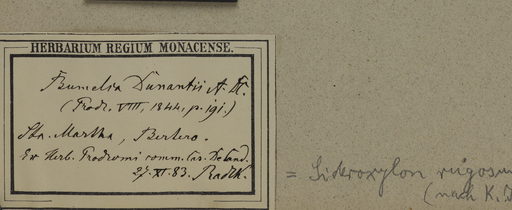 HERBARIUM REGIUM MONACENSE.
Bumelia Dunantii A. DC.
(Prodr. VIII, 1844, p. 191.)
Sta. Martha, Bertero.
Ex Herb. Prodromi comm. Cas. DeCand.
27. XI. 83. Radlk.
= Sideroxylon rugosum
(nach K.